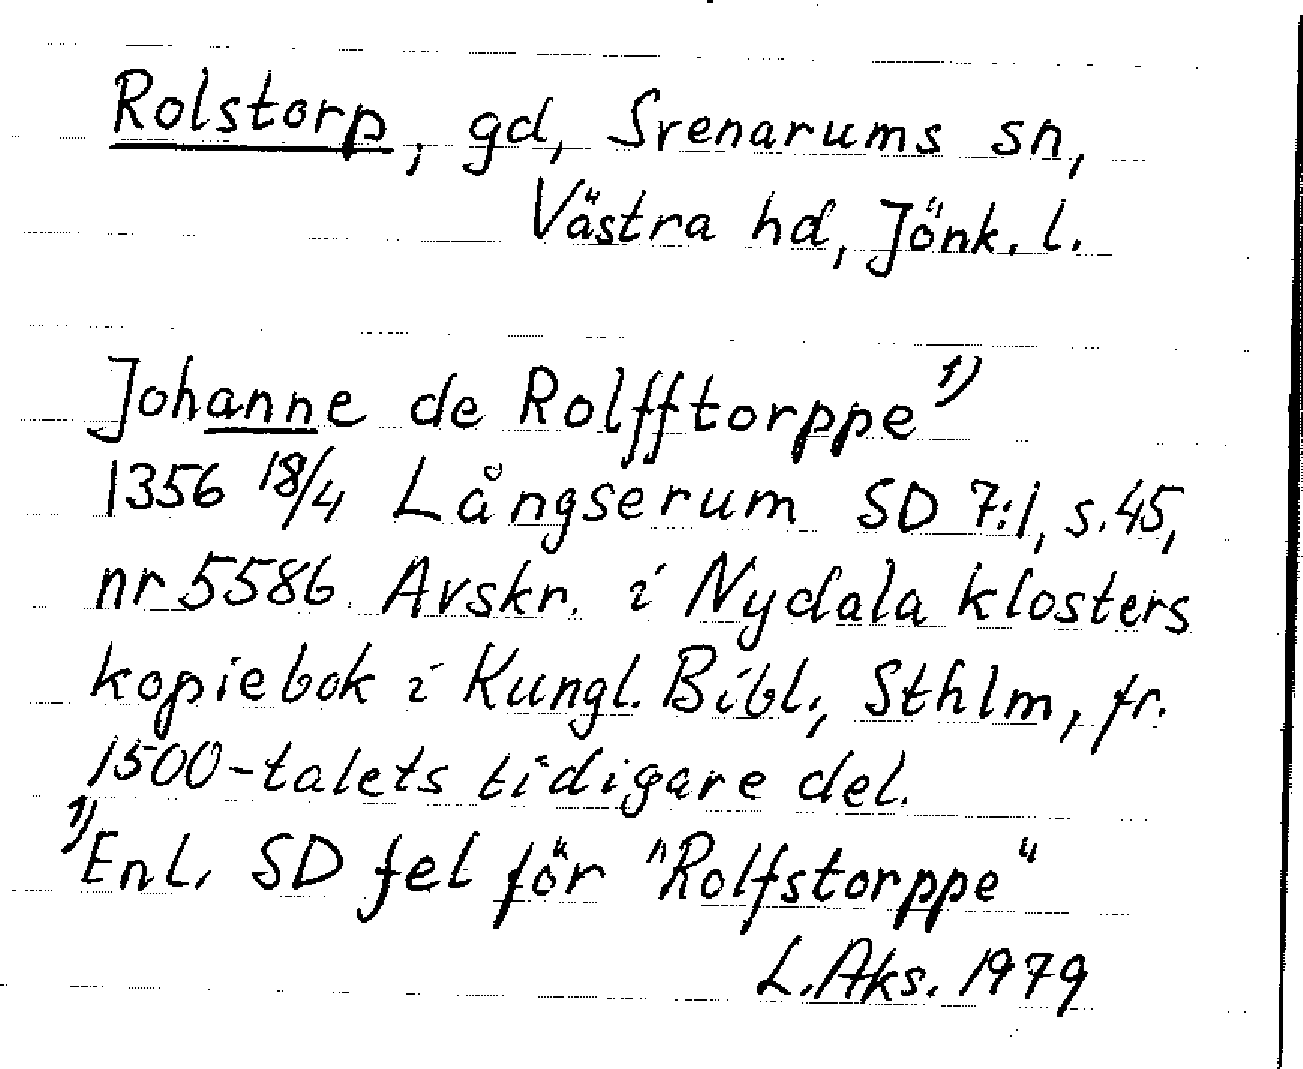 Rolstorp, gd, Srenarums sn,
Västra hd, Jönk. l.
Johanne de Rolfftorppe 1)
1356 18/4 Långserum SD 7:1, s. 45,
nr 5586. Avskr. i Nydala klosters
kopiebok i Kungl. Bibl., Sthlm, fr.
1500-talets tidigare del.
1) Enl. SD fel för "Rolfstorppe"
L. Aks. 1979